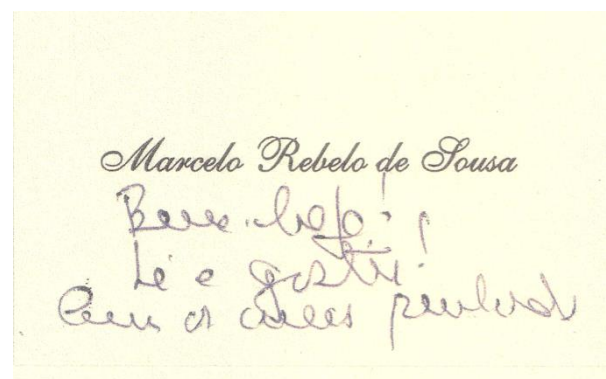 Marcelo Rebelo de Sousa
Bem haja!
Li e gostei.
Com os meus